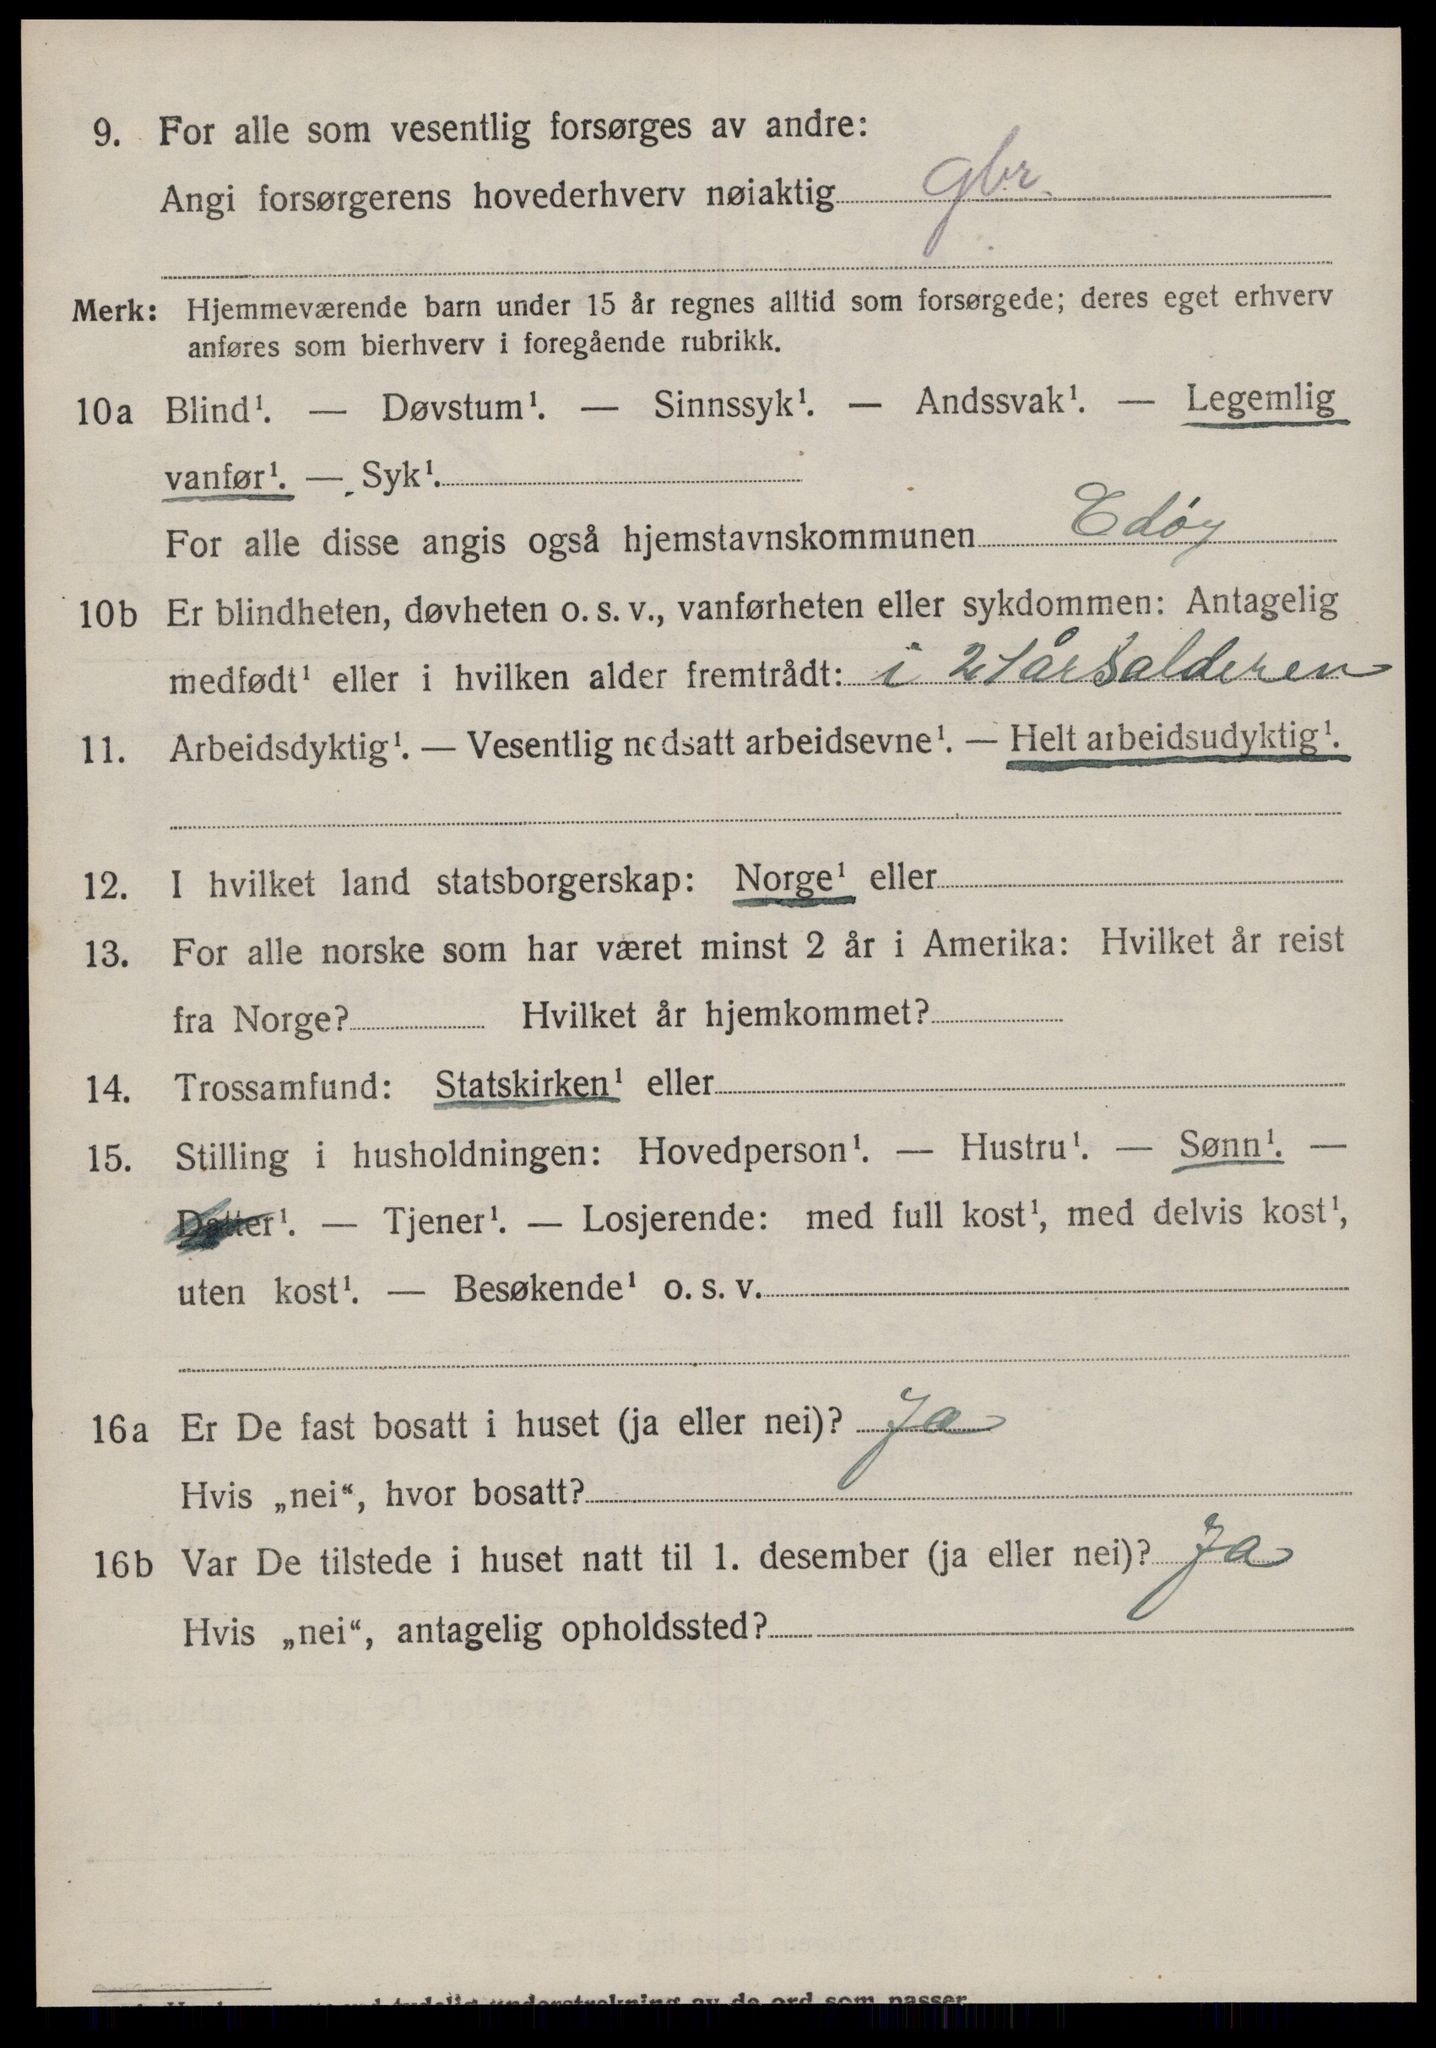 9. For alle som vesentlig forsørges av andre:
Angi forsørgerens hovederhverv nøiaktig gbr.
Merk: Hjemmeværende barn under 15 år regnes alltid som forsørgede; deres eget erhverv
anføres som bierhverv i foregående rubrikk.
10a Blind¹. — Døvstum¹. — Sinnssyk¹. — Andssvak¹. — Legemlig
vanfør¹. — Syk¹.
For alle disse angis også hjemstavnskommunen Edøy
10b Er blindheten, døvheten o. s. v., vanførheten eller sykdommen: Antagelig
medfødt¹ eller i hvilken alder fremtrådt: i årsalderen
11. Arbeidsdyktig¹. — Vesentlig nedsatt arbeidsevne¹. — Helt arbeidsudyktig¹.
12. I hvilket land statsborgerskap: Norge¹ eller
13. For alle norske som har været minst 2 år i Amerika: Hvilket år reist
fra Norge? Hvilket år hjemkommet?
14. Trossamfund: Statskirken¹ eller
15. Stilling i husholdningen: Hovedperson¹. — Hustru¹. — Sønn¹. —
Datter¹. — Tjener¹. — Losjerende: med full kost¹, med delvis kost¹,
uten kost¹. — Besøkende¹ o. s. v.
16a Er De fast bosatt i huset (ja eller nei)? Ja
Hvis „nei“, hvor bosatt?
16b Var De tilstede i huset natt til 1. desember (ja eller nei)? Ja
Hvis „nei“, antagelig opholdssted?
tydelig understrekning av de ord som passer